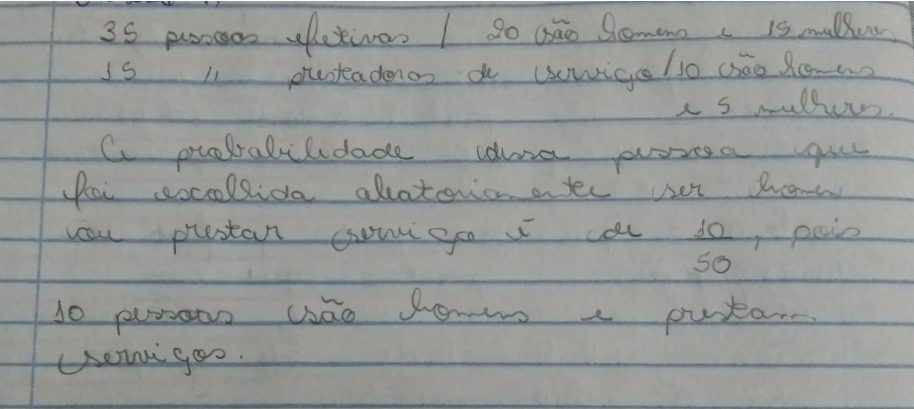 35 pessoas efetivas / 20 são homens e 15 mulheres
15 " prestadoras de serviço / 10 são homens
e 5 mulheres.
A probabilidade dessa pessoa que
foi escolhida aleatoriamente ser homem
ou prestar serviço é de 10/50, pois
10 pessoas são homens e prestam
serviços.